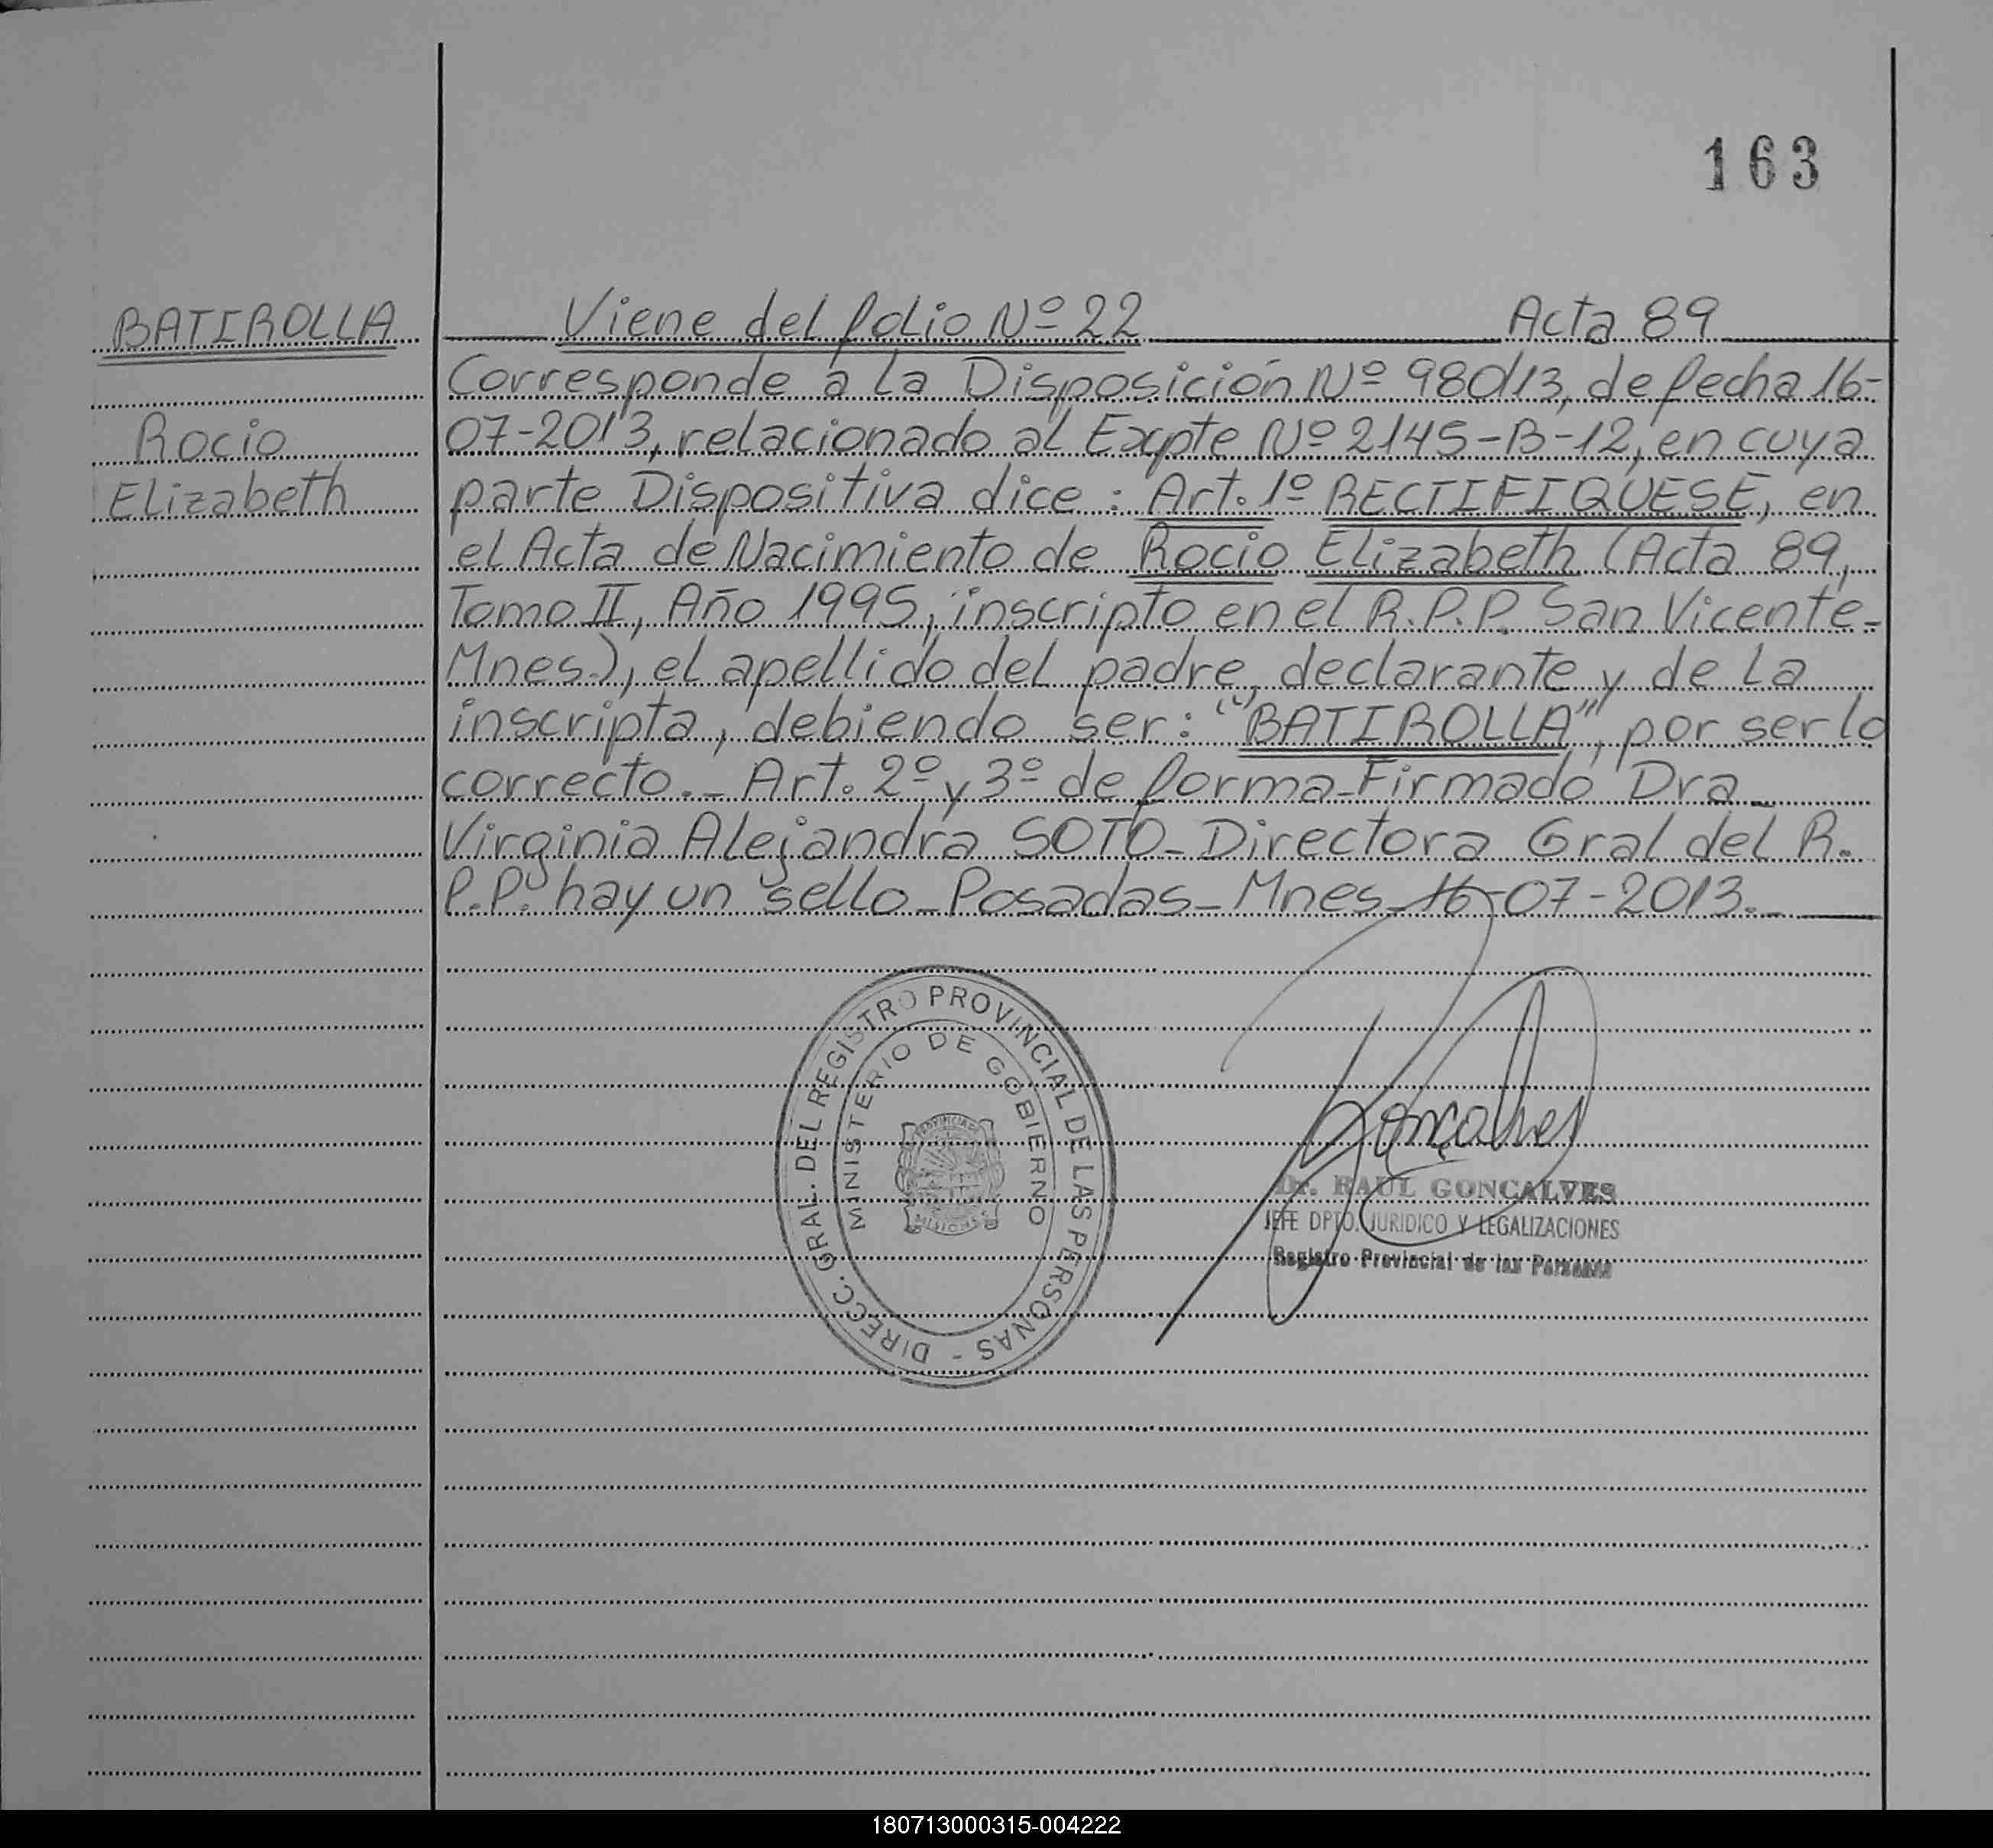 163
BATIROLLA
Rocio
Elizabeth
Viene del folio Nº 22 Acta 89
Corresponde a la Disposición Nº 980/13, de fecha 16-
07-2013, relacionado al Expte Nº 2145-B-12, en cuya
parte Dispositiva dice: Art. 1º RECTIFIQUESE, en
el Acta de Nacimiento de Rocio Elizabeth (Acta 89,
Tomo II, Año 1995, inscripto en el R.P.P. San Vicente-
Mnes.), el apellido del padre, declarante y de la
inscripta, debiendo ser: "BATIROLLA", por ser lo
correcto._ Art. 2º y 3º de forma_Firmado Dra_
Virginia Alejandra SOTO_ Directora Gral del R.
P.P. hay un sello_Posadas_Mnes_16-07-2013._
DIRECC. GRAL. DEL REGISTRO PROVINCIAL DE LAS PERSONAS -
MINISTERIO DE GOBIERNO
PROVINCIA DE
MISIONES
Gonçalves
Dr. RAUL GONÇALVES
JEFE DPTO. JURIDICO Y LEGALIZACIONES
Registro Provincial de las Personas
180713000315-004222